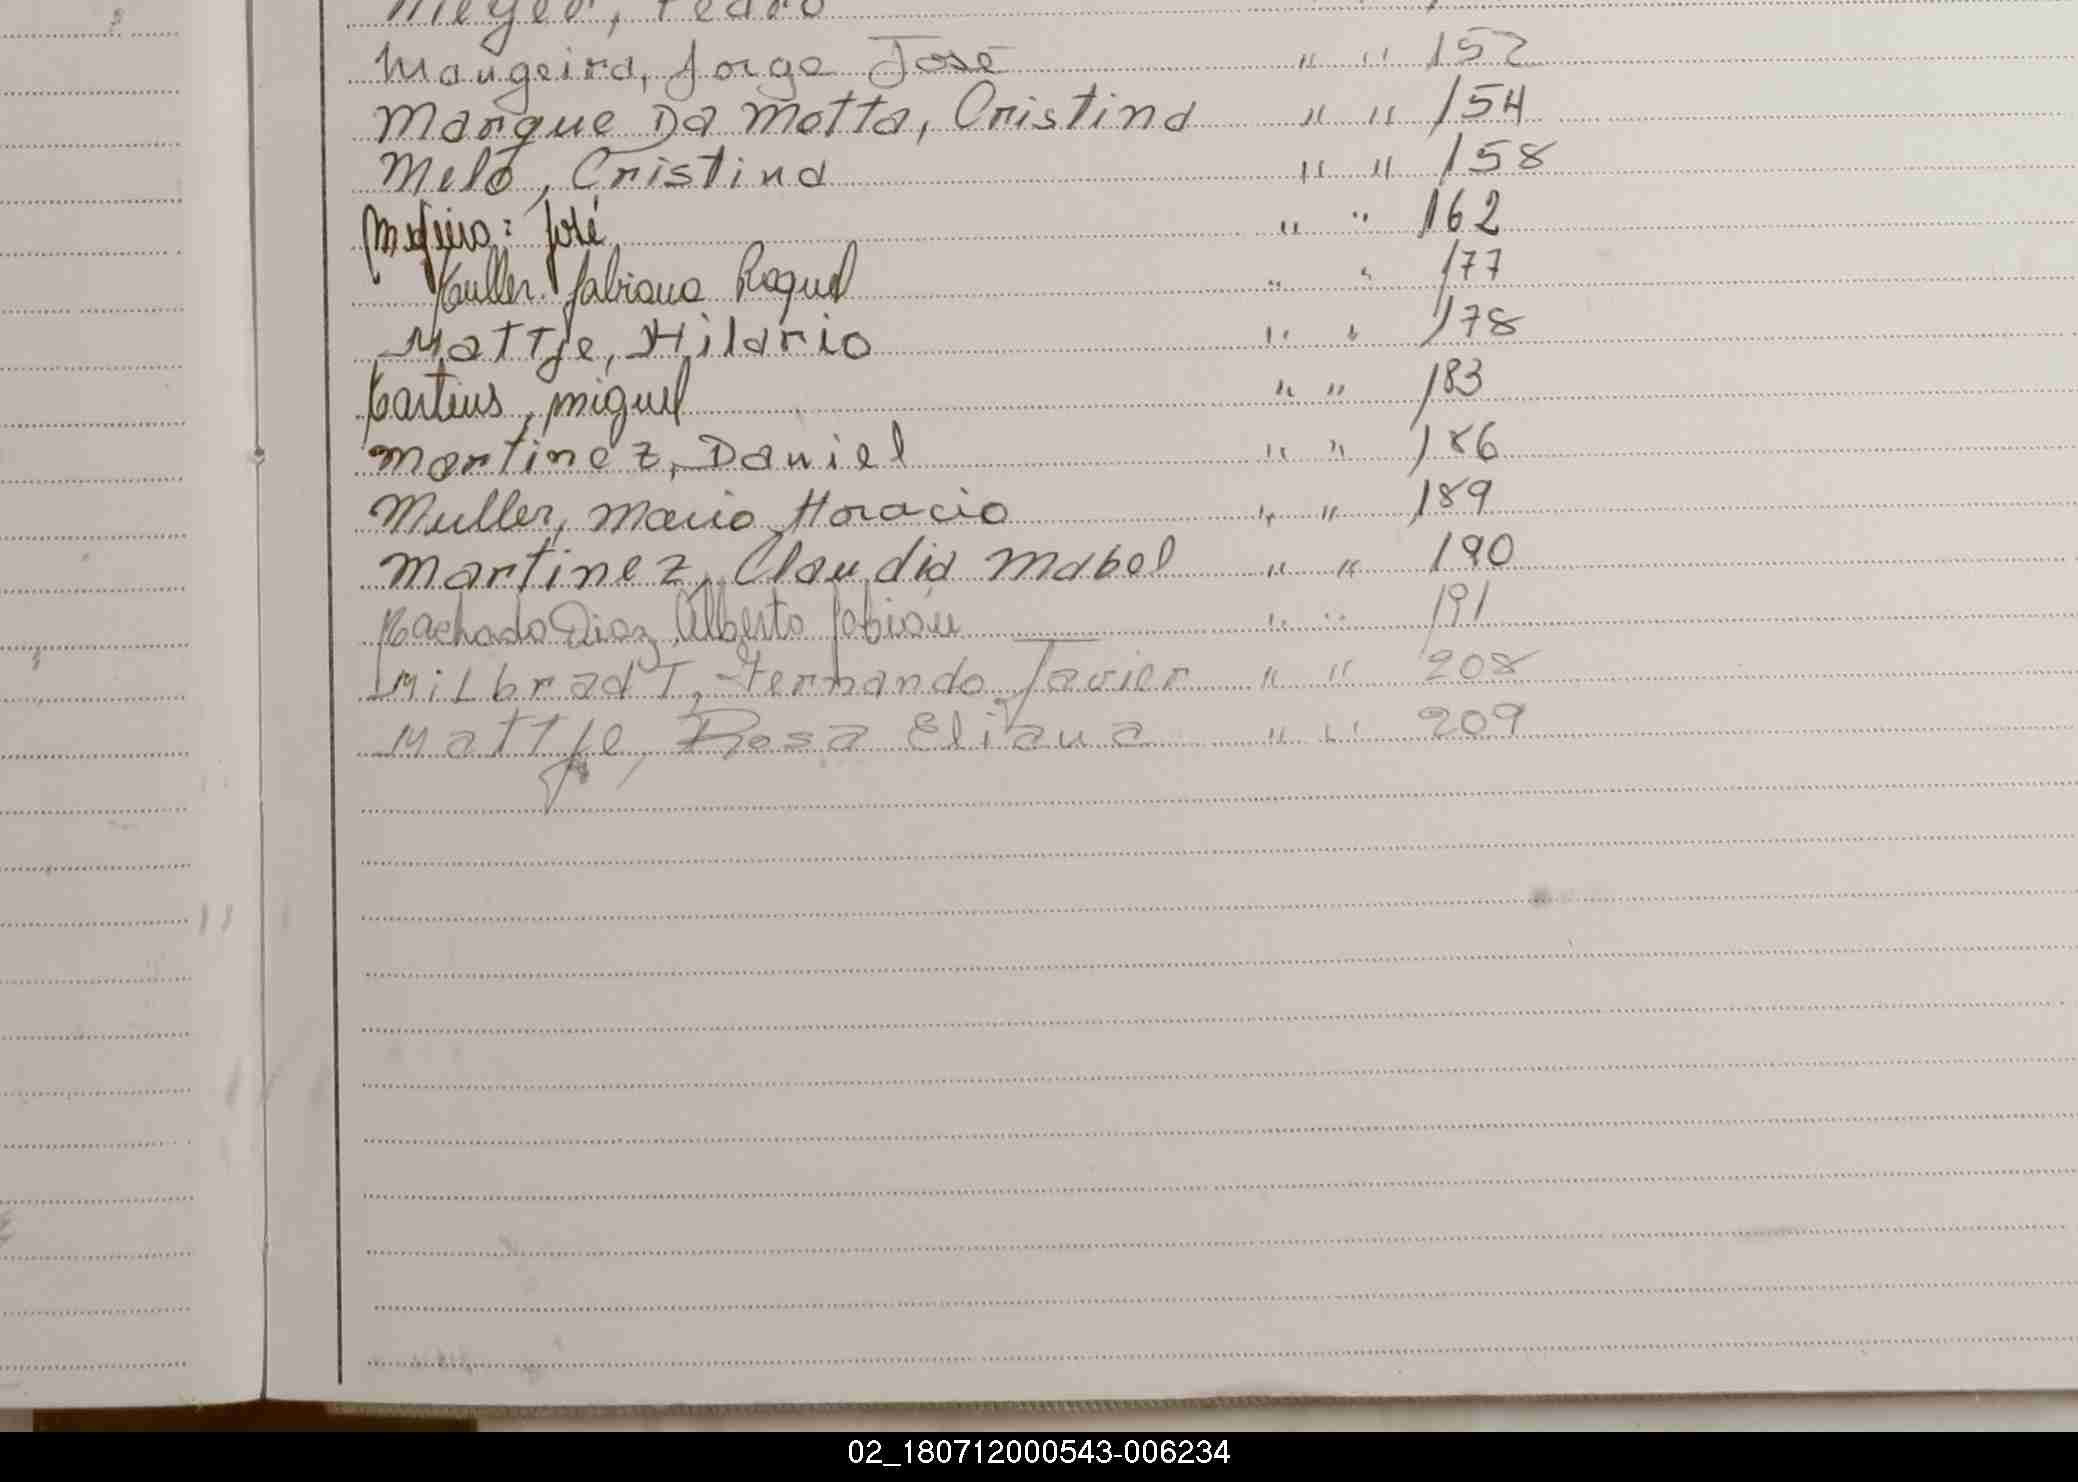 Meyer, Pedro
Maugeira, Jorge José " " 152
Marque Da Motta, Cristina " " 154
Melo, Cristina " " 158
José " " 162
Muller Fabiana Raquel " " 177
Mattje, Hilario " " 178
Martins, Miguel " " 183
Martinez, Daniel " " 186
Muller, Mario Horacio " " 189
Martinez, Claudia Mabel " " 190
Machado Diaz, Alberto Fabián " " 191
Milbradt, Fernando Javier " " 208
Mattje, Rosa Eliana " " 209
02_180712000543-006234